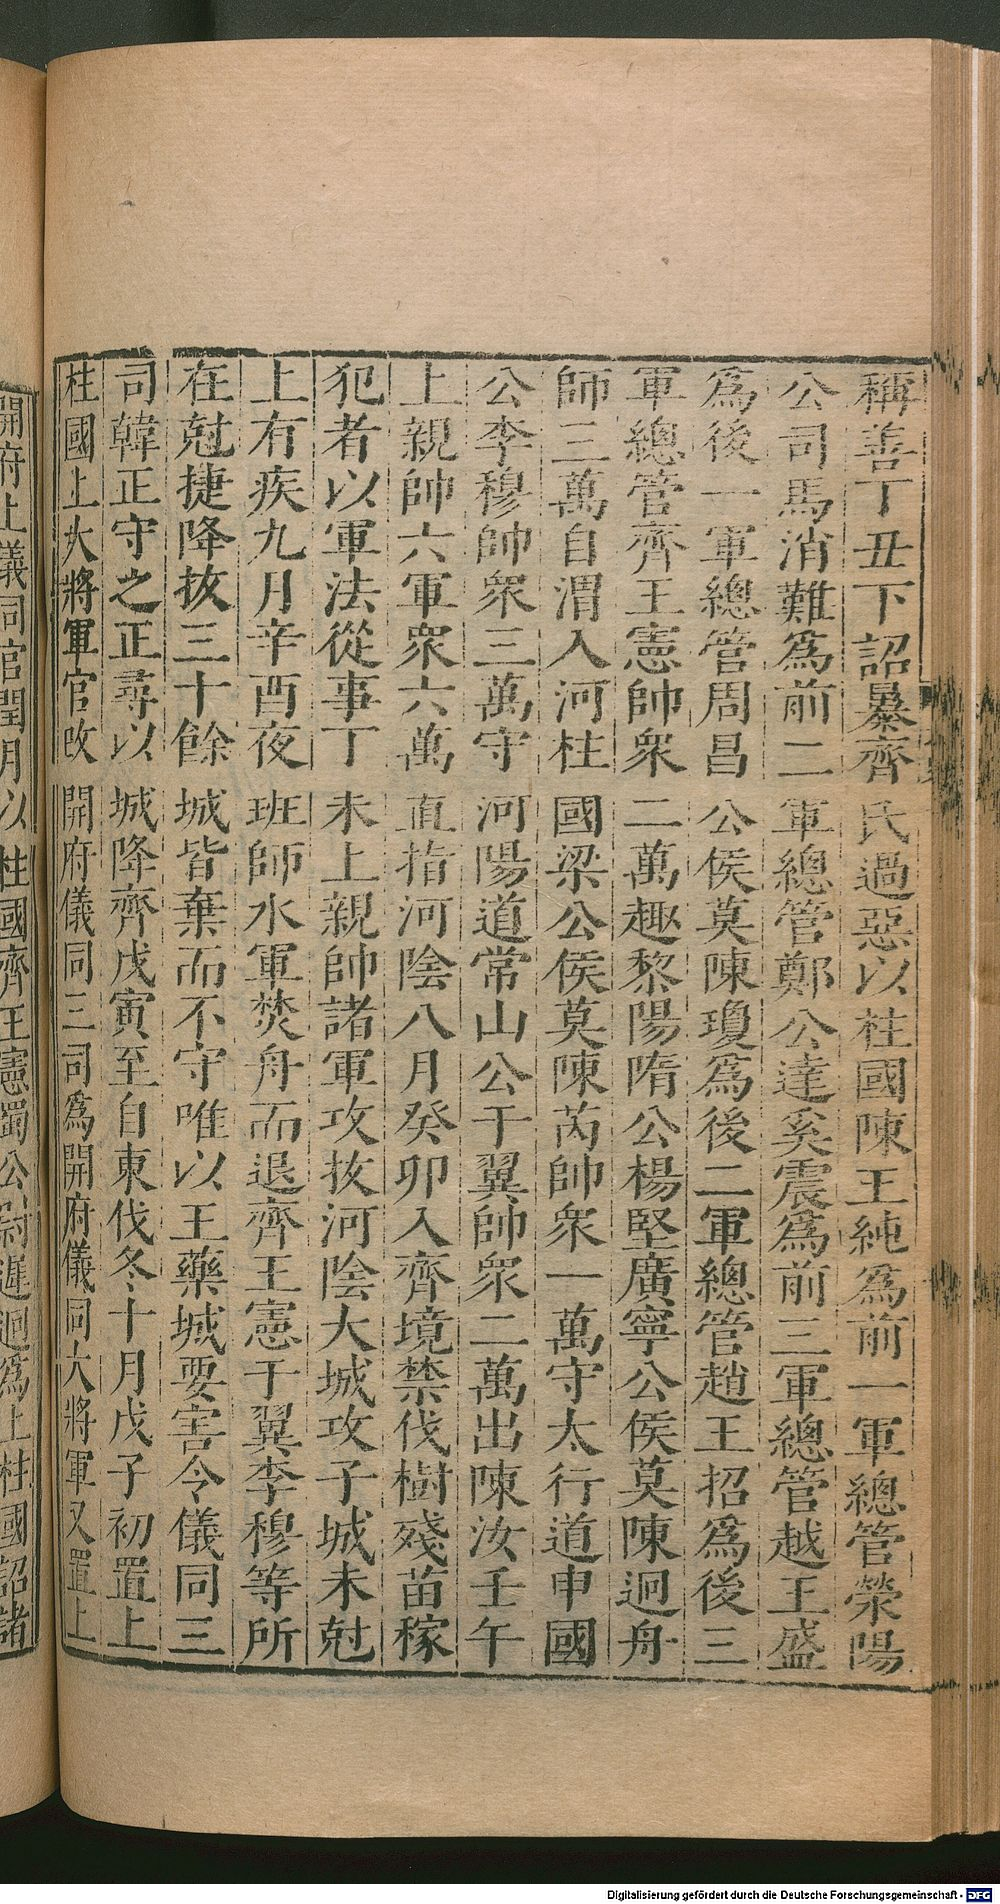 稱善丁丑下詔暴齊氏過惡以柱國陳王純爲前一軍總管滎陽
公司馬消難爲前二軍總管鄭公達奚震爲前三軍總管越王盛
爲後一軍總管周昌公侯莫陳瓊爲後二軍總管趙王招爲後三
軍總管齊王憲帥衆二萬趣黎陽隋公楊堅廣寧公侯莫陳迥舟
師三萬自渭入河柱國梁公侯莫陳芮帥衆一萬守太行道申國
公李穆帥衆三萬守河陽道常山公于翼帥衆二萬出陳汝壬午
上親帥六軍衆六萬直指河陰八月癸卯入齊境禁伐樹殘苗稼
犯者以軍法從事丁未上親帥諸軍攻拔河陰大城攻子城未尅
上有疾九月辛酉夜班師水軍焚舟而退齊王憲于翼李穆等所
在尅捷降拔三十餘城皆棄而不守唯以王藥城要害令儀同三
司韓正守之正尋以城降齊戊寅至自東伐冬十月戊子初置上
柱國上大將軍官改開府儀同三司爲開府儀同大將軍又置上
開府上儀同官閏月以柱國齊王憲蜀公尉遲迥爲上柱國詔諸
Digitalisierung gefördert durch die Deutsche Forschungsgemeinschaft - DFG